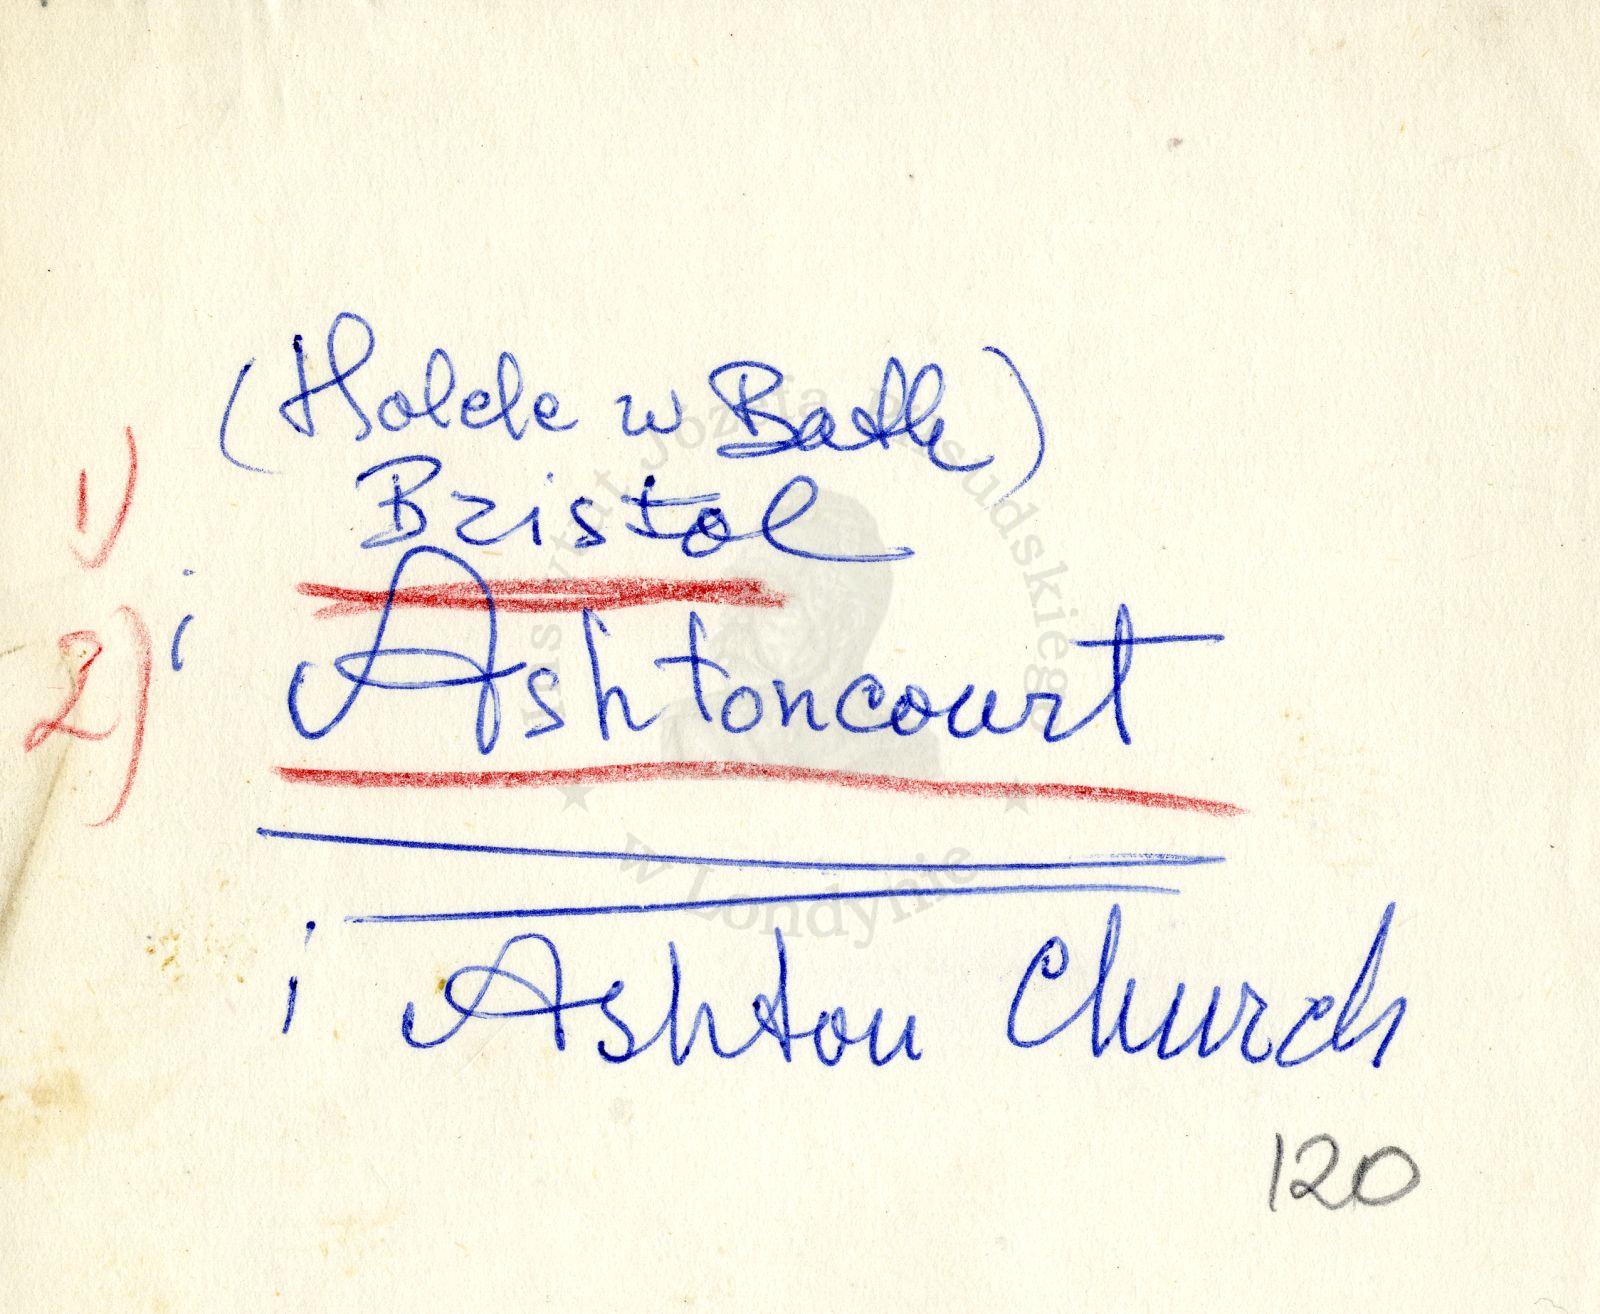 (Holde w Bath)
1) Bristol
2) i Ashtoncourt
i Ashton Church
120
Instytut Józefa Piłsudskiego
w Londynie